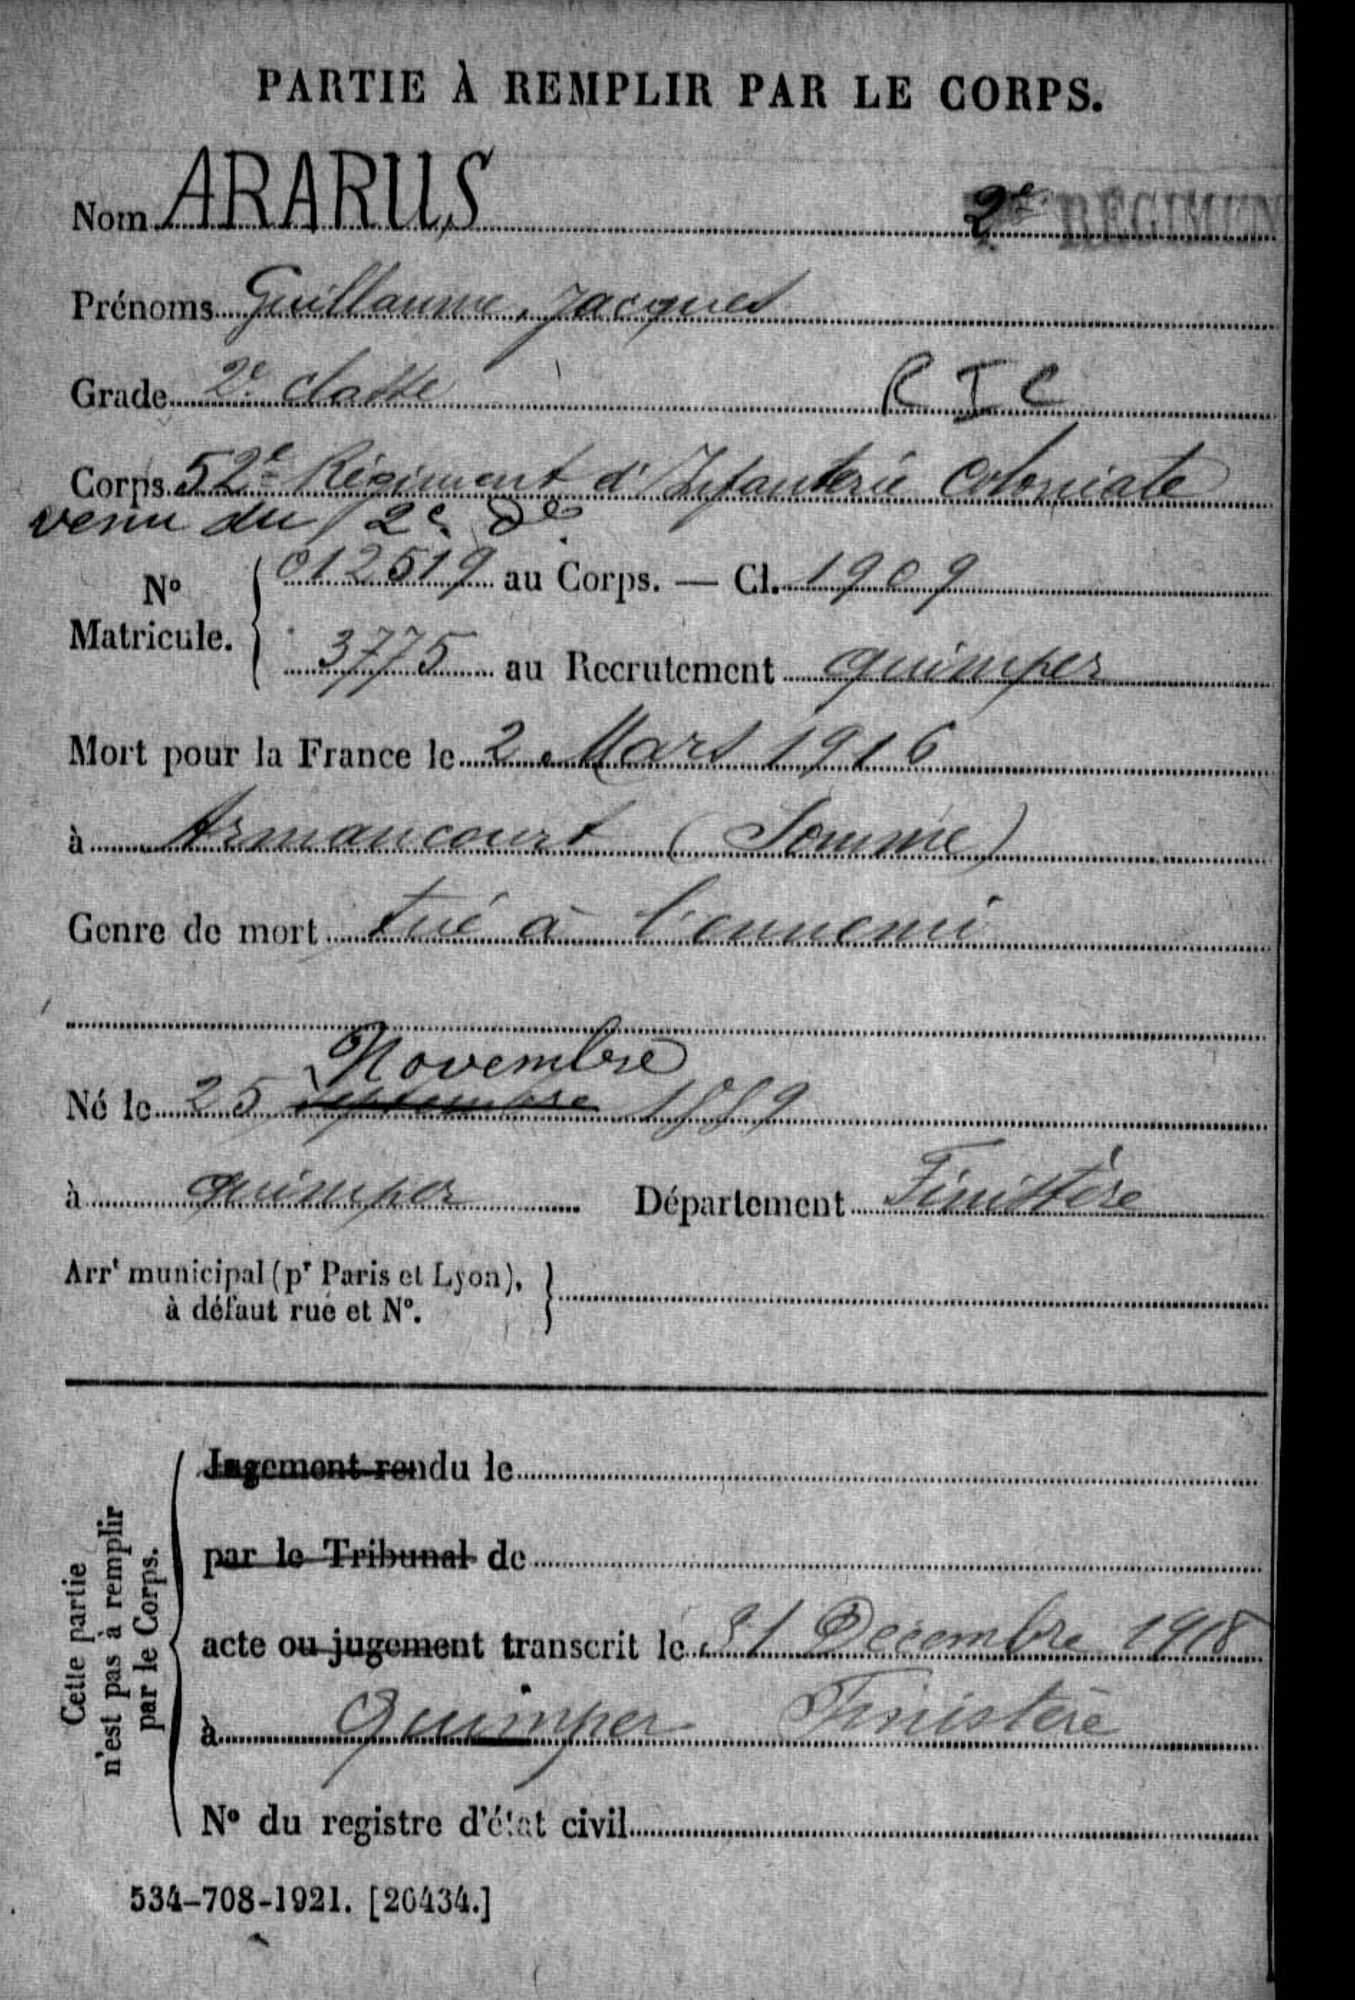 PARTIE À REMPLIR PAR LE CORPS.
Nom ARARUS 2e RÉGIMEN
Prénoms Guillaume, Jacques
Grade 2e classe R I C
Corps 52e Régiment d'Infanterie Coloniale
venu du 2e do
No Matricule. 012519 au Corps. — Cl. 1909
3775 au Recrutement quimper
Mort pour la France le 2 Mars 1916
à Armancourt (Somme)
Genre de mort tué à l'ennemi
Novembre
Né le 25 septembre 1889
à quimper Département Finistère
Arrt municipal (pr Paris et Lyon),
à défaut rue et No.
Cette partie
n'est pas à remplir
par le Corps.
Jugement rendu le
par le Tribunal de
acte ou jugement transcrit le 31 Décembre 1918
à Quimper Finistère
No du registre d'état civil
534-708-1921. [26434.]